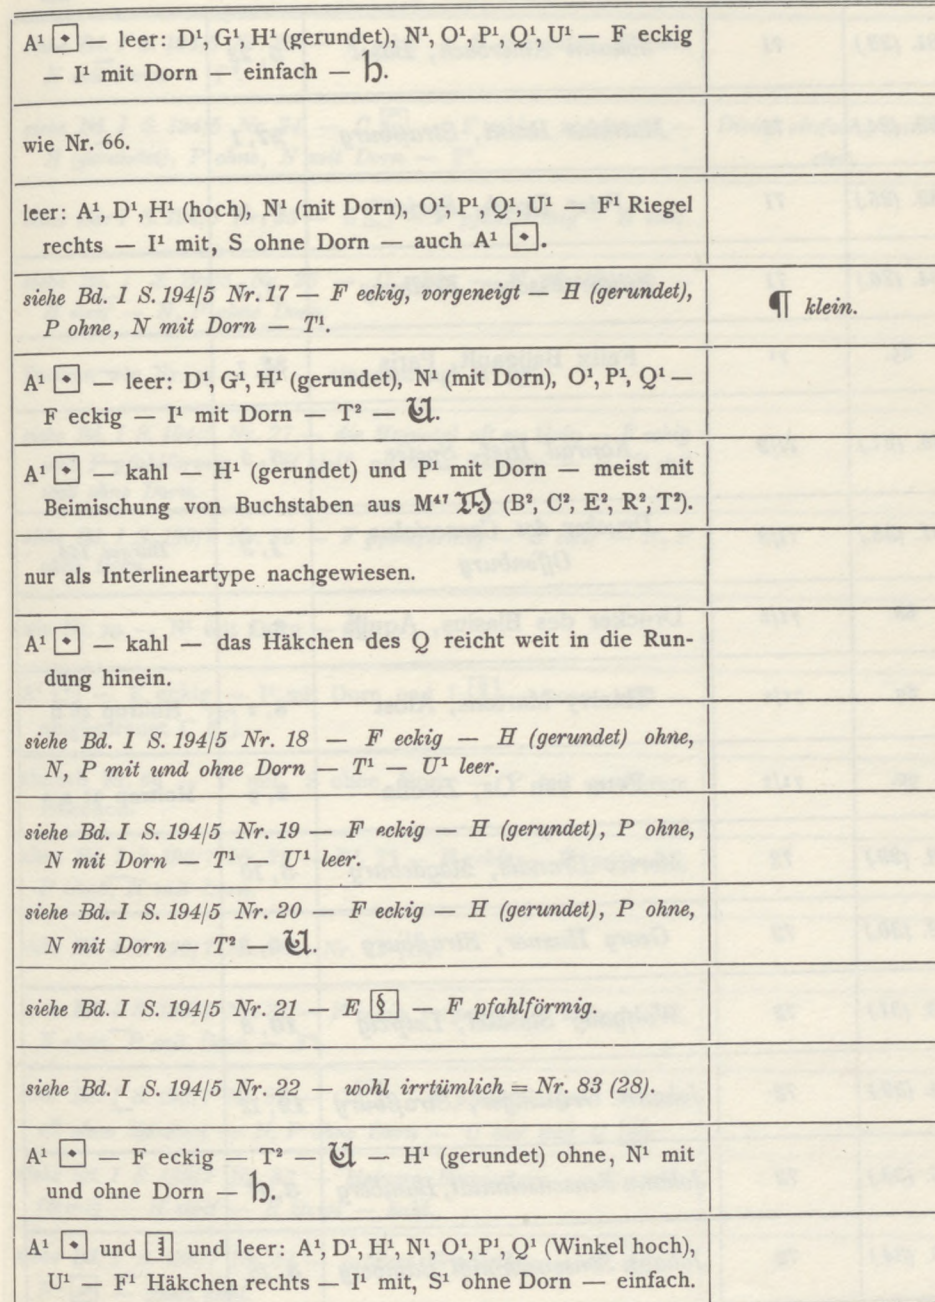 A¹ [•] — leer: D¹, G¹, H¹ (gerundet), N¹, O¹, P¹, Q¹, U¹ — F eckig
— I¹ mit Dorn — einfach — h.
wie Nr. 66.
leer: A¹, D¹, H¹ (hoch), N¹ (mit Dorn), O¹, P¹, Q¹, U¹ — F¹ Riegel
rechts — I¹ mit, S ohne Dorn — auch A¹ [•].
siehe Bd. I S. 194/5 Nr. 17 — F eckig, vorgeneigt — H (gerundet),
P ohne, N mit Dorn — T¹.
¶ klein.
A¹ [•] — leer: D¹, G¹, H¹ (gerundet), N¹ (mit Dorn), O¹, P¹, Q¹ —
F eckig — I¹ mit Dorn — T² — 𝔘.
A¹ [•] — kahl — H¹ (gerundet) und P¹ mit Dorn — meist mit
Beimischung von Buchstaben aus M⁴⁷ (B², C², E², R², T²).
nur als Interlineartype nachgewiesen.
A¹ [•] — kahl — das Häkchen des Q reicht weit in die Run-
dung hinein.
siehe Bd. I S. 194/5 Nr. 18 — F eckig — H (gerundet) ohne,
N, P mit und ohne Dorn — T¹ — U¹ leer.
siehe Bd. I S. 194/5 Nr. 19 — F eckig — H (gerundet), P ohne,
N mit Dorn — T¹ — U¹ leer.
siehe Bd. I S. 194/5 Nr. 20 — F eckig — H (gerundet), P ohne,
N mit Dorn — T² — 𝔘.
siehe Bd. I S. 194/5 Nr. 21 — E [§] — F pfahlförmig.
siehe Bd. I S. 194/5 Nr. 22 — wohl irrtümlich = Nr. 83 (28).
A¹ [•] — F eckig — T² — 𝔘 — H¹ (gerundet) ohne, N¹ mit
und ohne Dorn — h.
A¹ [•] und und leer: A¹, D¹, H¹, N¹, O¹, P¹, Q¹ (Winkel hoch),
U¹ — F¹ Häkchen rechts — I¹ mit, S¹ ohne Dorn — einfach.